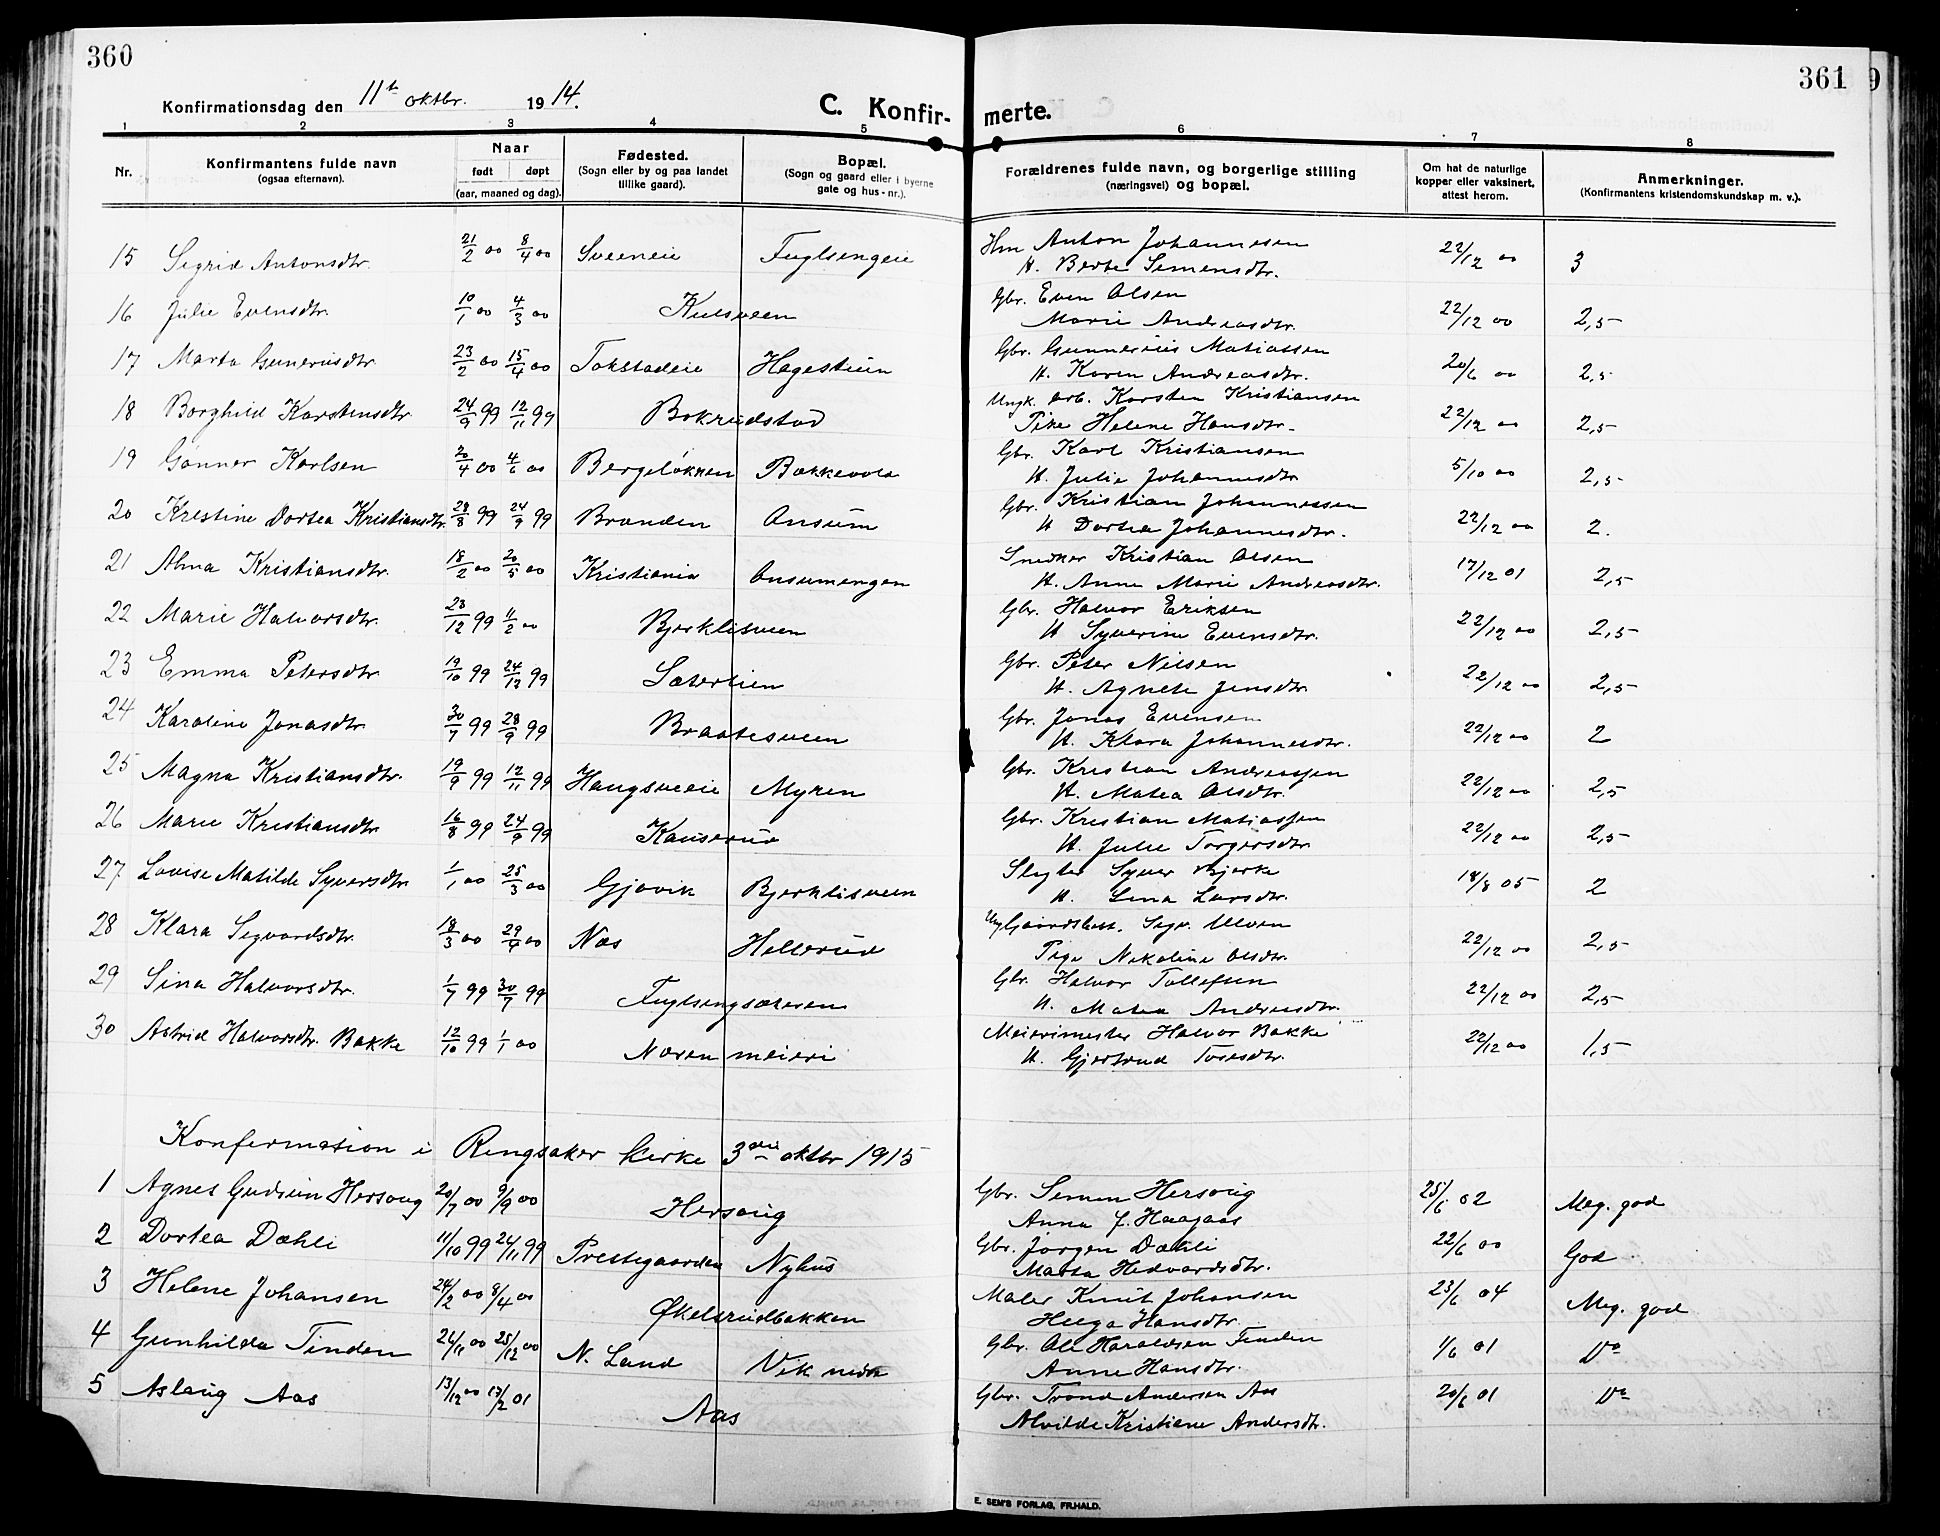 360
361
Konfirmationsdag den 11te oktbr. 1914.
C. Konfirmerte.
1 2 3 4 5 6 7 8
Nr.
Konfirmantens fulde navn
(ogsaa efternavn).
Naar
født døpt
(aar, maaned og dag).
Fødested.
(Sogn eller by og paa landet
tillike gaard).
Bopæl.
(Sogn og gaard eller i byerne
gate og hus-nr.).
Forældrenes fulde navn, og borgerlige stilling
(næringsvei) og bopæl.
Om hat de naturlige
kopper eller vaksinert,
attest herom.
Anmerkninger.
(Konfirmantens kristendomskundskap m. v.).
15 Sigrid Antonsdtr. 21/2 00 8/4 00 Sveeneie Fuglsengeie Hm Anton Johannesen 22/12 00 3
H. Berte Simensdtr.
16 Julie Evensdtr. 10/1 00 4/3 00 Kulsveen Gbr. Even Olsen 22/12 00 2,5
Marie Andreasdtr.
17 Marta Gunerusdtr. 23/2 00 15/4 00 Tokstadeie Hagestuen Gbr. Gunnerius Matiassen 20/6 00 2,5
H. Karen Andreasdtr.
18 Borghild Karstensdtr. 24/9 99 12/11 99 Bokrudstad Ungk. arb. Karsten Kristiansen 22/12 00 2,5
Pike Helene Hansdtr.
19 Gunner Karlsen 20/4 00 4/6 00 Bergeløkken Bakkevola Gbr. Karl Kristiansen 5/10 00 2,5
H. Julie Johannesdtr
20 Kristine Dortea Kristiansdtr. 28/8 99 24/9 99 Branden Ousum Gbr. Kristian Johannessen 22/12 00 2.
H Dortea Johannesdtr.
21 Alma Kristiansdtr. 18/2 00 20/5 00 Kristiania Ousumengen Snedker Kristian Olsen 17/12 01 2,5
H. Anne Marie Andreasdtr.
22 Marie Halvorsdtr. 23/12 99 11/2 00 Bjerklisveen Gbr. Halvor Eriksen 22/12 00 2,5
H Syverine Evensdtr.
23 Emma Petersdtr 19/10 99 24/12 99 Sæterlien Gbr. Peter Nilsen 22/12 00 2,5
H. Agnete Jensdtr
24 Karoline Jonasdtr. 30/7 99 28/9 99 Braatesveen Gbr. Jonas Evensen 22/12 00 2
H. Klara Johannesdtr.
25 Magna Kristiansdtr. 19/9 99 12/11 99 Haugsveeie Myren Gbr. Kristian Andreassen 22/12 00 2,5
H. Matea Olsdtr.
26 Marie Kristiansdtr. 16/8 99 24/9 99 Kauserud Gbr. Kristian Matiassen 22/12 00 2,5
H. Julie Torgersdtr
27 Lovise Matilde Syversdtr. 1/1 00 25/3 00 Gjøvik Bjerklisveen Slagter Syver Bjerke 18/8 05 2
H. Lina Larsdtr.
28 Klara Sigvardsdtr. 18/3 00 29/4 00 Næs Hellerud Sigv. Ulven 22/12 00 2,5
Pige Nikoline Olsdtr.
29 Sina Halvorsdtr. 1/7 99 30/7 99 Fuglsengsæteren Gbr. Halvor Tollefsen 22/12 00 2,5
H. Matea Andreasdtr.
30 Astrid Halvorsdtr. Bakke 12/10 99 1/1 00 Næren meieri Meierimester Halvor Bakke 22/12 00 1,5
H. Gjertrud Toresdtr.
Konfirmation i Ringsaker kirke 3die oktbr 1915
1 Agnes Gudrun Hersoug 20/7 00 9/9 00 Hersoug Gbr. Simen Hersoug 25/6 02 Meg. god
Anna f. Haagaas
2 Dortea Dæhli 11/10 99 26/11 99 Prestegaarden Nyhus Gbr. Jørgen Dæhli 22/6 00 God
Marta Hedvardsdtr.
3 Helene Johansen 24/2 00 8/4 00 Økelsrudbakken Maler Knut Johansen 23/6 04 Meg. god
Helga Hansdtr.
4 Gunhilda Tinden 26/11 00 25/12 00 N. Land Vik nedre Gbr. Ole Haraldsen Tinden 1/6 01 Do
Anne Hansdtr.
5 Aslaug Aas 13/12 00 17/2 01 Aas Gbr. Trond Andersen Aas 20/6 01 Do
Alvilde Kristiane Andersdtr.
E. SEM'S FORLAG, FR.HALD.